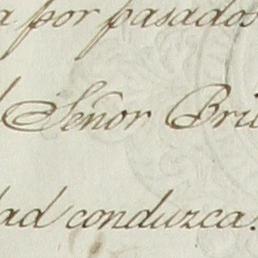 a por pasados
Señor Bri
dad conduzca.